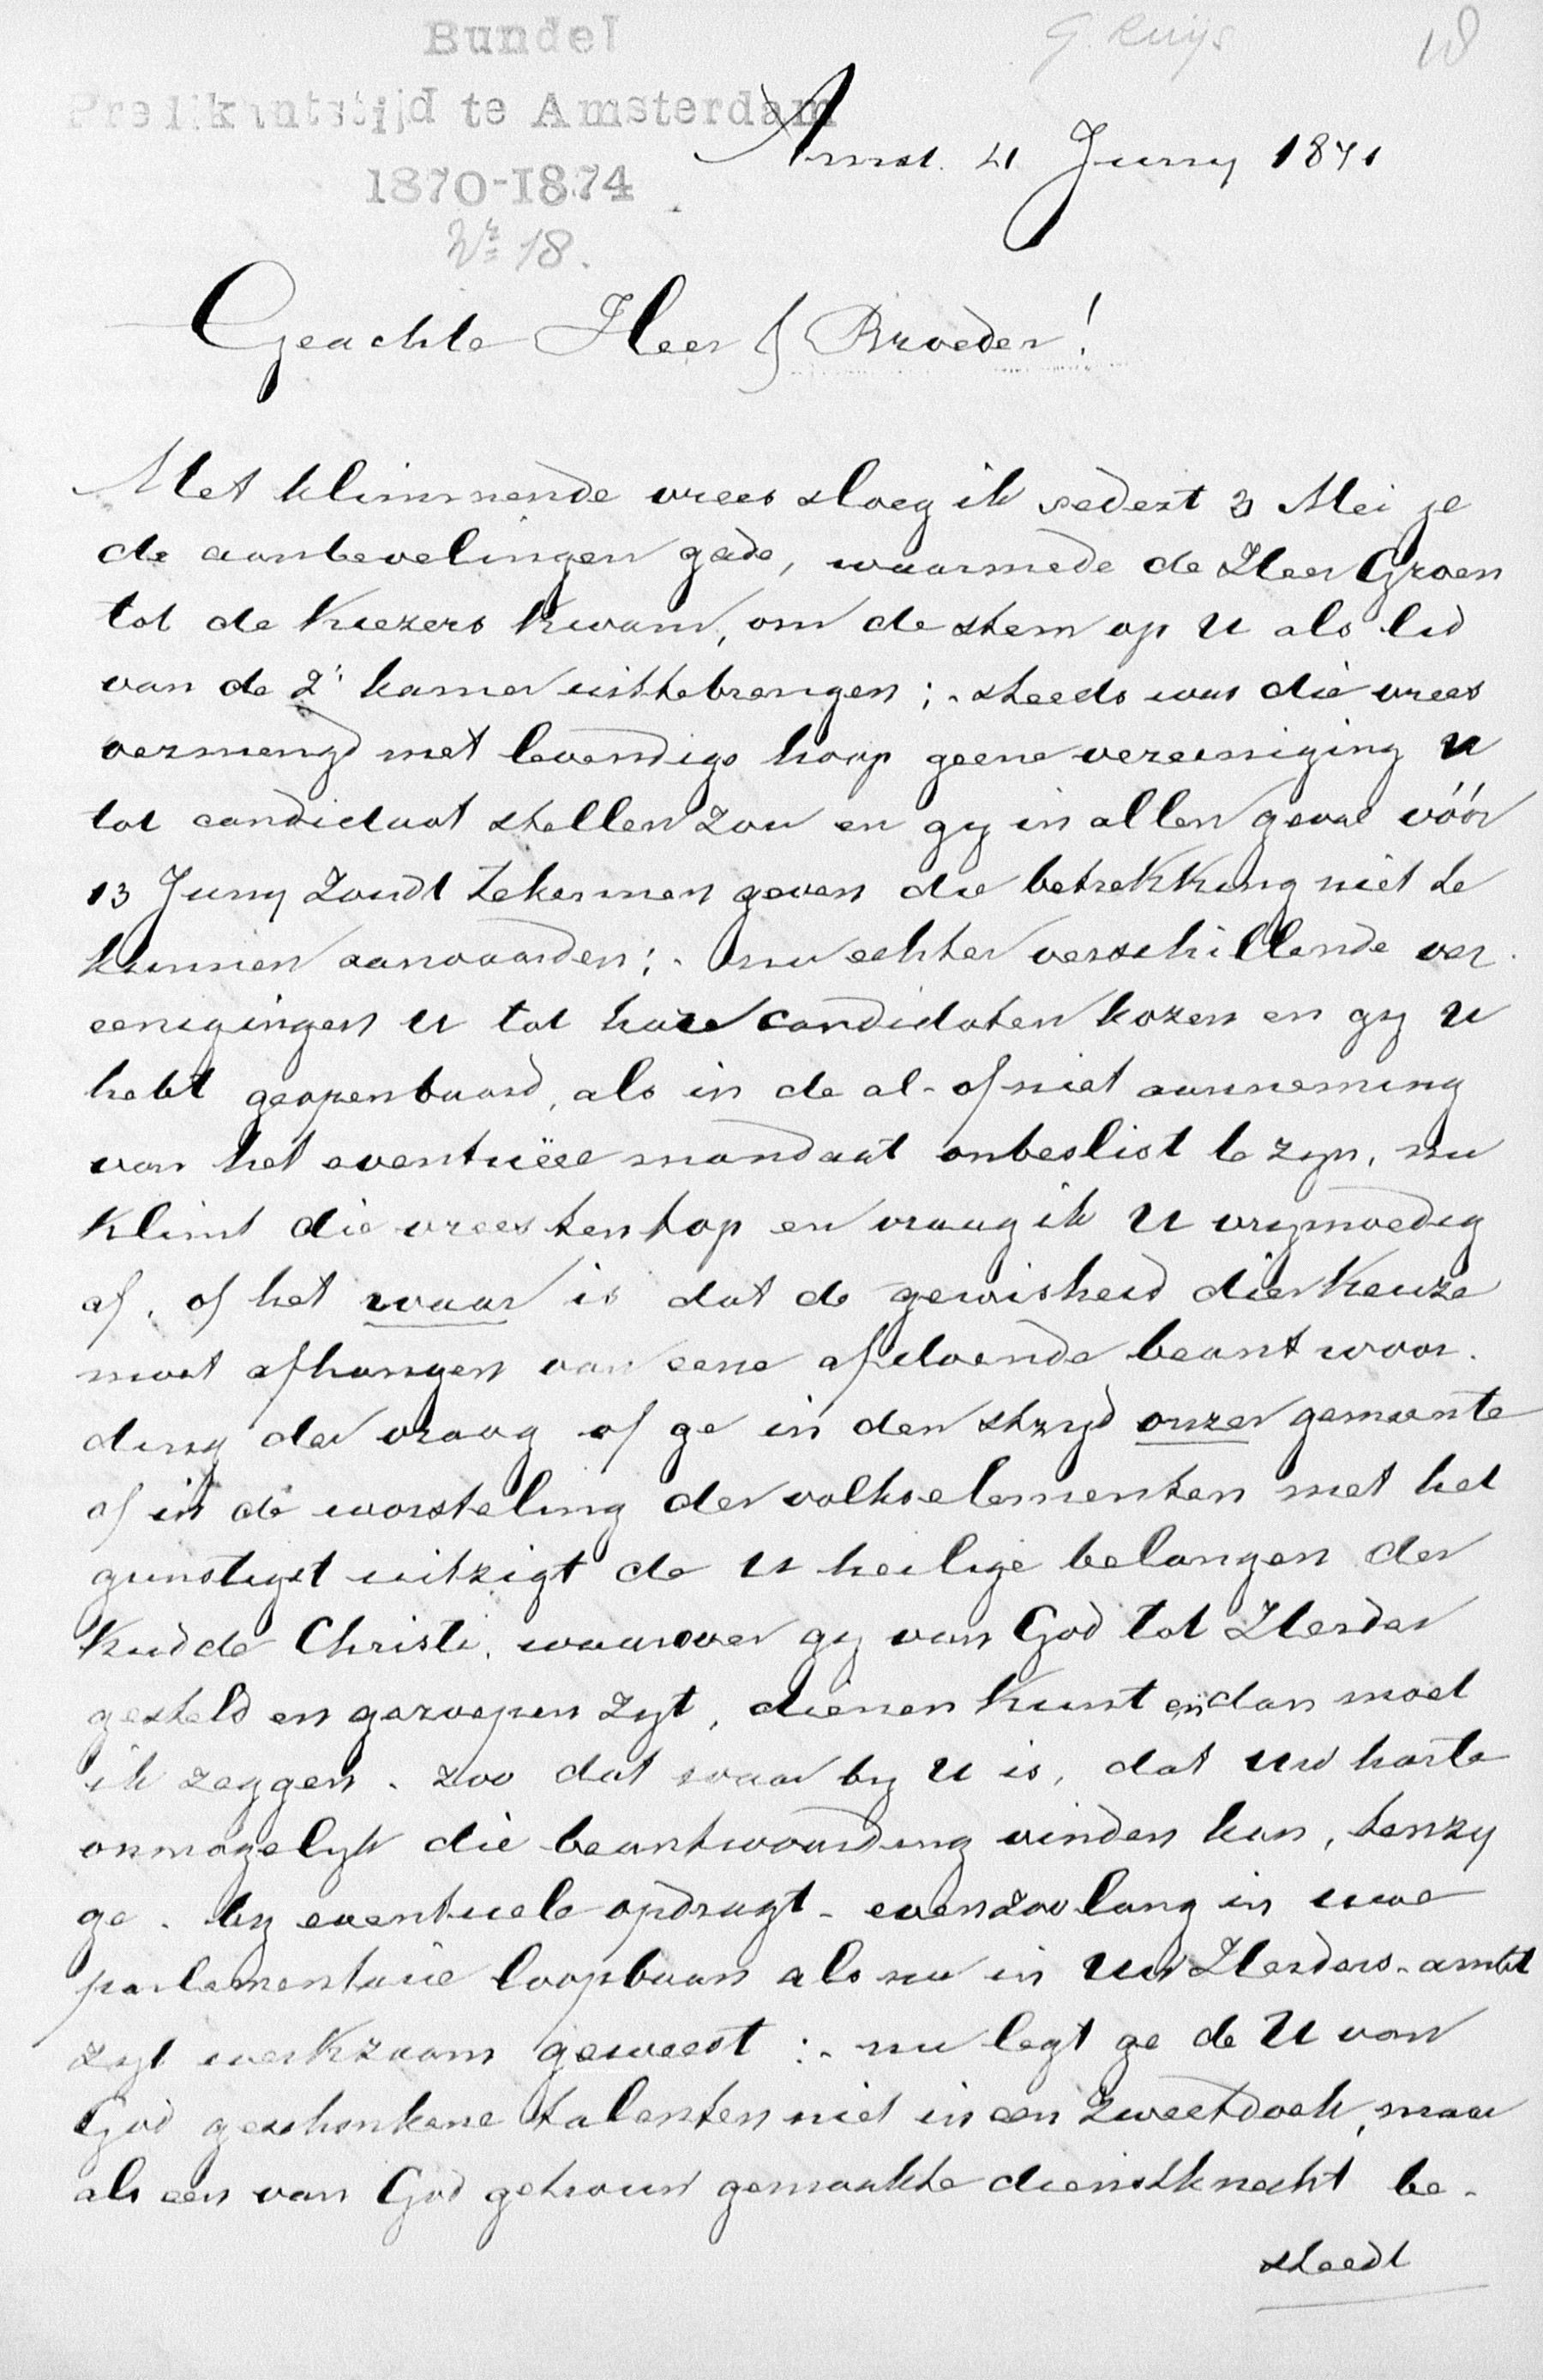 Bundel
G. Ruijs
18
Predikantstijd te Amsterdam
Amst. 4 Juny 1871
1870-1874
Nr 18.
Geachte Heer & Broeder!
Met klimmende vrees sloeg ik sedert 3 Mei jl
de aanbevelingen gade, waarmede de Heer Groen
tot de Kiezers kwam, om de stem op U als lid
van de 2e kamer uittebrengen; - steeds was die vrees
vermengd met levendige hoop geene vereeniging U
tot candidaat stellen zou en gy in allen geval vóór
13 Juny zoudt te kennen geven die betrekking niet te
kunnen aanvaarden; - nu echter verschillende ver-
eenigingen U tot hare candidaten kozen en gy U
hebt geopenbaard, als in de al- of niet aanneming
van het eventuëel mandaat onbeslist te zyn, nu
klimt die vrees ten top en vraag ik U vrymoedig
af, of het waar is dat de gewisheid dier Keuze
moet afhangen van eene afdoende beantwoor-
ding der vraag of ge in den stryd onzer gemeente
of in de worsteling der volkselementen met het
gunstigst uitzigt de U heilige belangen der
Kudde Christi, waarover gy van God tot Herder
gesteld en geroepen zyt, dienen kunt en dan moet
ik zeggen - zoo dat waar by U is, dat uw harte
onmogelyk die beantwoording vinden kan, tenzy
ge - by eventuele opdragt - evenzoolang in uwe
parlementaire loopbaan als nu in Uw Herders-ambt
zyt werkzaam geweest: - nu legt ge de U van
God geschonkene talenten niet in een zweetdoek, maar
als een van God getrouw gemaakte dienstknecht be-
steedt